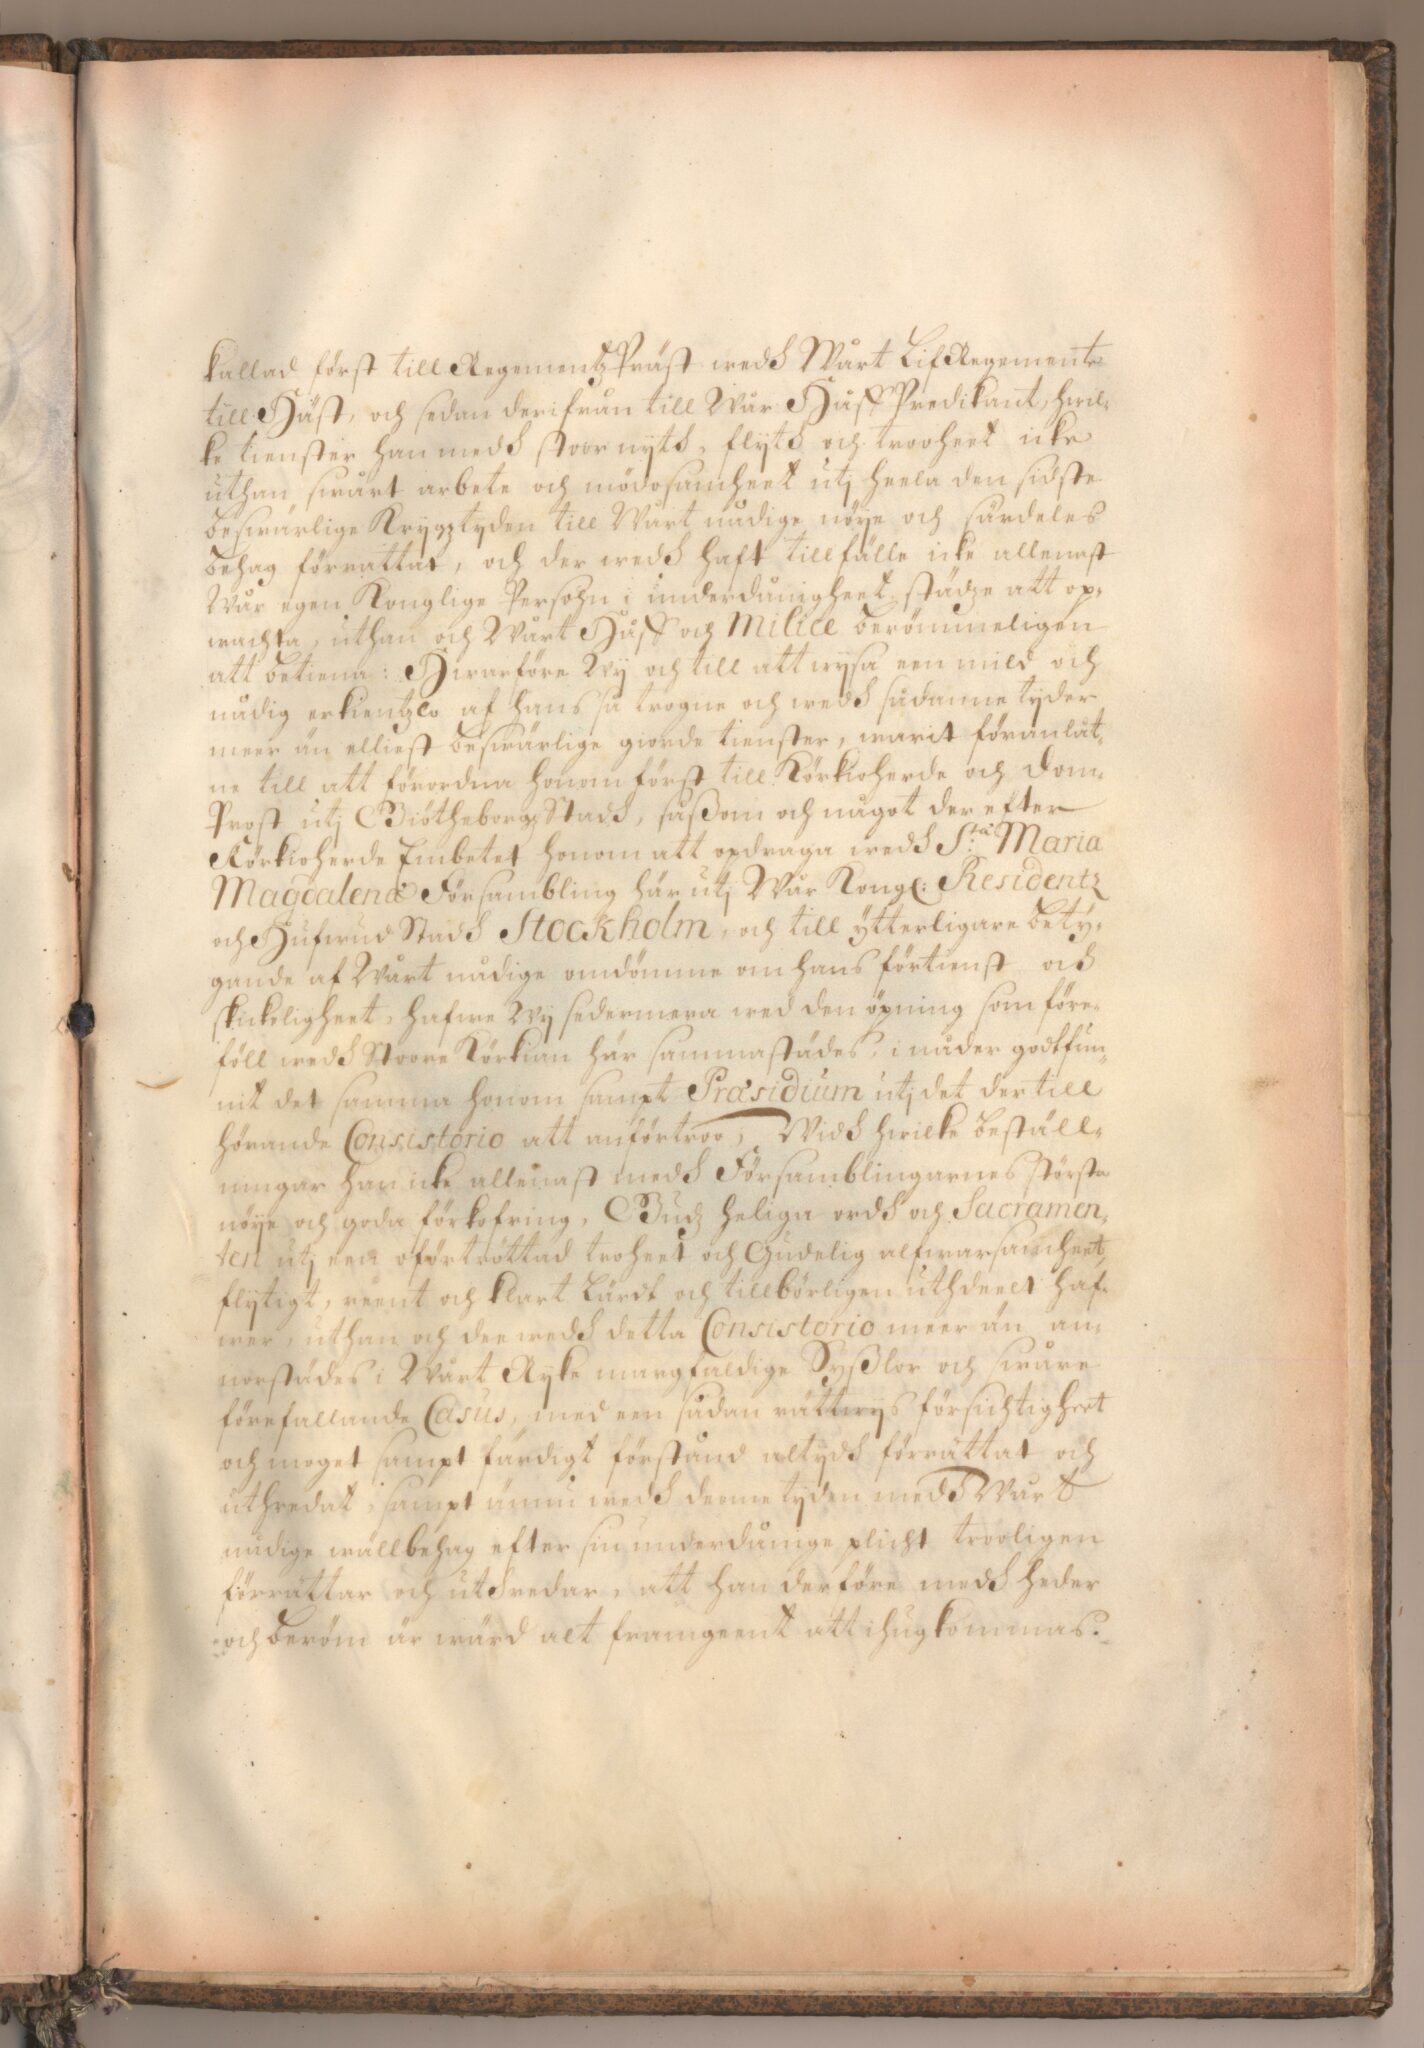 kallad först till Regementz Präst wedh Wårt Lif Regemente
till Häst, och sedan derifrån till Wår Håff Predikant, hwil-
ke tienster han medh stoor nytt, flijth och trooheet icke
uthan swårt arbete och mödosamheet utj heela den sidste
beswärlige Krygztyden till Wårt nådige nöye och särdeles
behag förrättat, och der wedh haft tillfälle icke allenast
Wår egen Konglige Persohn i underdånigheet städze att op-
wachta, uthan och Wårt Håff och Milice berömmeligen
att betiena: Hwarföre Wy och till att wysa een mild och
nådig erkientzlo af hans så trogne och wedh sådanne tyder
meer än elliest beswärlige giorde tienster, warit föranlåt-
ne till att förordna honom först till Körkioherde och Dom-
Prost utj Giötheborgz Stadh, såßom och något der efter
Körkioherde Embetet honom att opdraga wedh S:ta Maria
Magdalenæ Försambling här utj Wår Kongl: Residentz
och Hufwud Stadh Stockholm, och till ytterligare bety-
gande af Wårt nådige omdömme om hans förtienst och
skickeligheet, hafwe Wy sedermera wed den öpning som före-
föll wedh Stoore Körkian här sammastädes, i nåder godtfun-
nit det samma honom sampt Præsidium utj det der till
hörande Consistorio att anförtroo, Widh hwilke beställ-
ningar han icke allenast medh Församblingarnes största
nöye och goda förkofring, Gudz heliga ordh och Sacramen-
ten utj een oförtröttad troheet och Gudelig alfwarsamheet,
flytigt, reent och klart lärdt och tillbörligen uthdeelt haf-
wer, uthan och dee wedh detta Consistorio meer än an-
norstädes i Wårt Ryke mångfaldige Sysslor och swåre
förefallande Casus, med een sådan rättwys försichtigheet
och moget sampt färdigt förstånd altydh förrättat och
uthredat, sampt ännu wedh denne tyden medh Wårt
nådige wällbehag efter sin underdånige plicht trooligen
förrättar och uthredar, att han derföre medh heder
och beröm är wärd alt framgeent att ihugkommas.